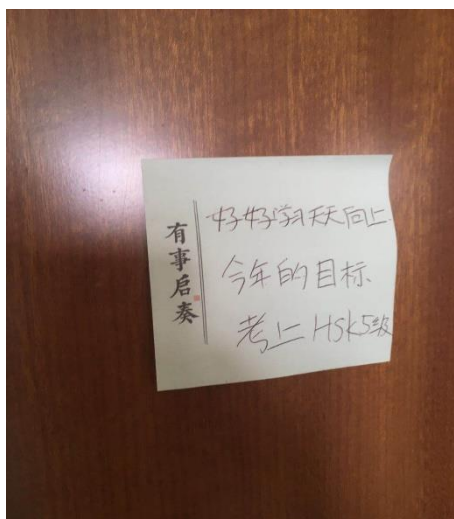 有事启奏
好好学习天天向上
今年的目标
考上HSK5级